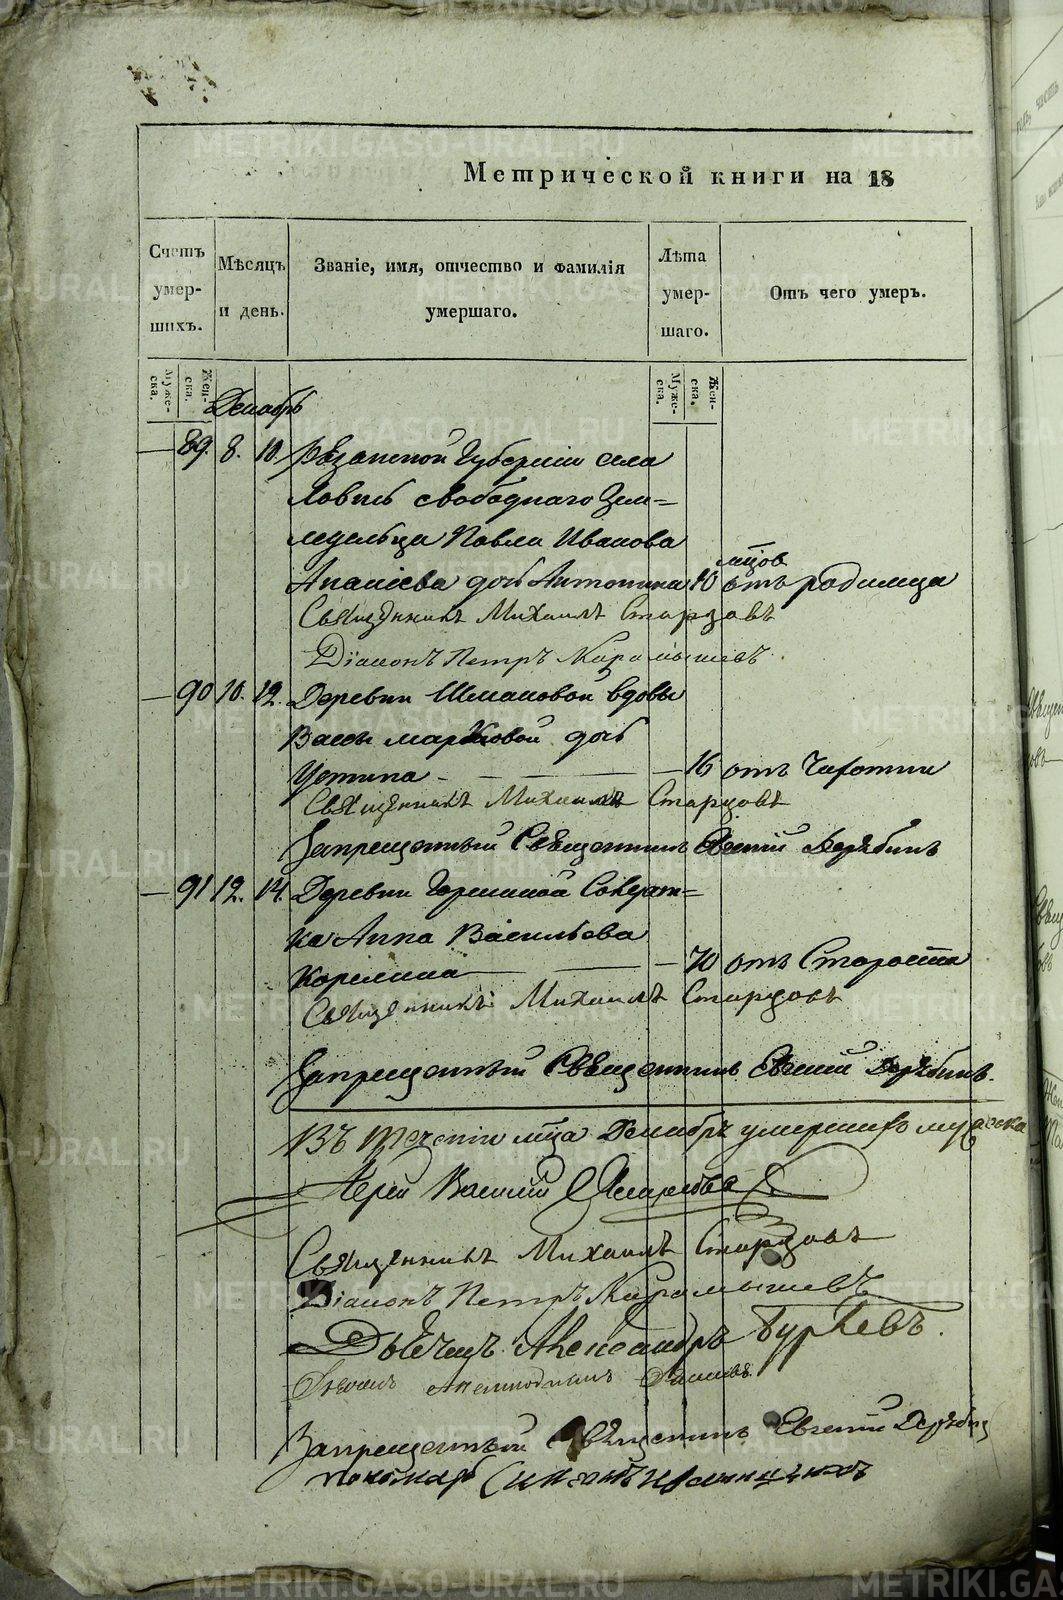 Метрической книги на 18
Счетъ умер-шихъ.
Мѣсяцъ и день.
Званіе, имя, отчество и фамилія умершаго.
Лѣта умер-шаго.
Отъ чего умеръ.
Муже-ска.
Жен-ска.
Муже-ска.
Жен-ска.
Декабрь
89. 8. 10. Рязанской Губерніи села
Ловцъ свободнаго Зем-
ледельца Павла Иванова
Ананіева дочь Антонина 10 мцов отъ родимца
Священникъ Михаилъ Старцовъ
Діаконъ Петръ Карамышевъ
90 10. 12. Деревни Шмаковой вдовы
Вассы Марковой дочь
Устина 16 отъ Чахотки
Священникъ Михаилъ Старцовъ
Запрещенный Священникъ Евгеній Дерябинъ
91 12. 14. Деревни солдат-
ка Анна Васильева
Корелина 70 отъ Старости
Священникъ Михаилъ Старцовъ
Запрещенный Священникъ Евгеній Дерябинъ.
Въ теченіи мца Декабрѣ умершихъ мужеска
Іерей Василій
Священникъ Михаилъ Старцовъ
Діаконъ Петръ Карамышевъ
Дьячекъ Александръ
Запрещенный Священникъ Евгеній Дерябинъ
пономарь
METRIKI.GASO-URAL.RU